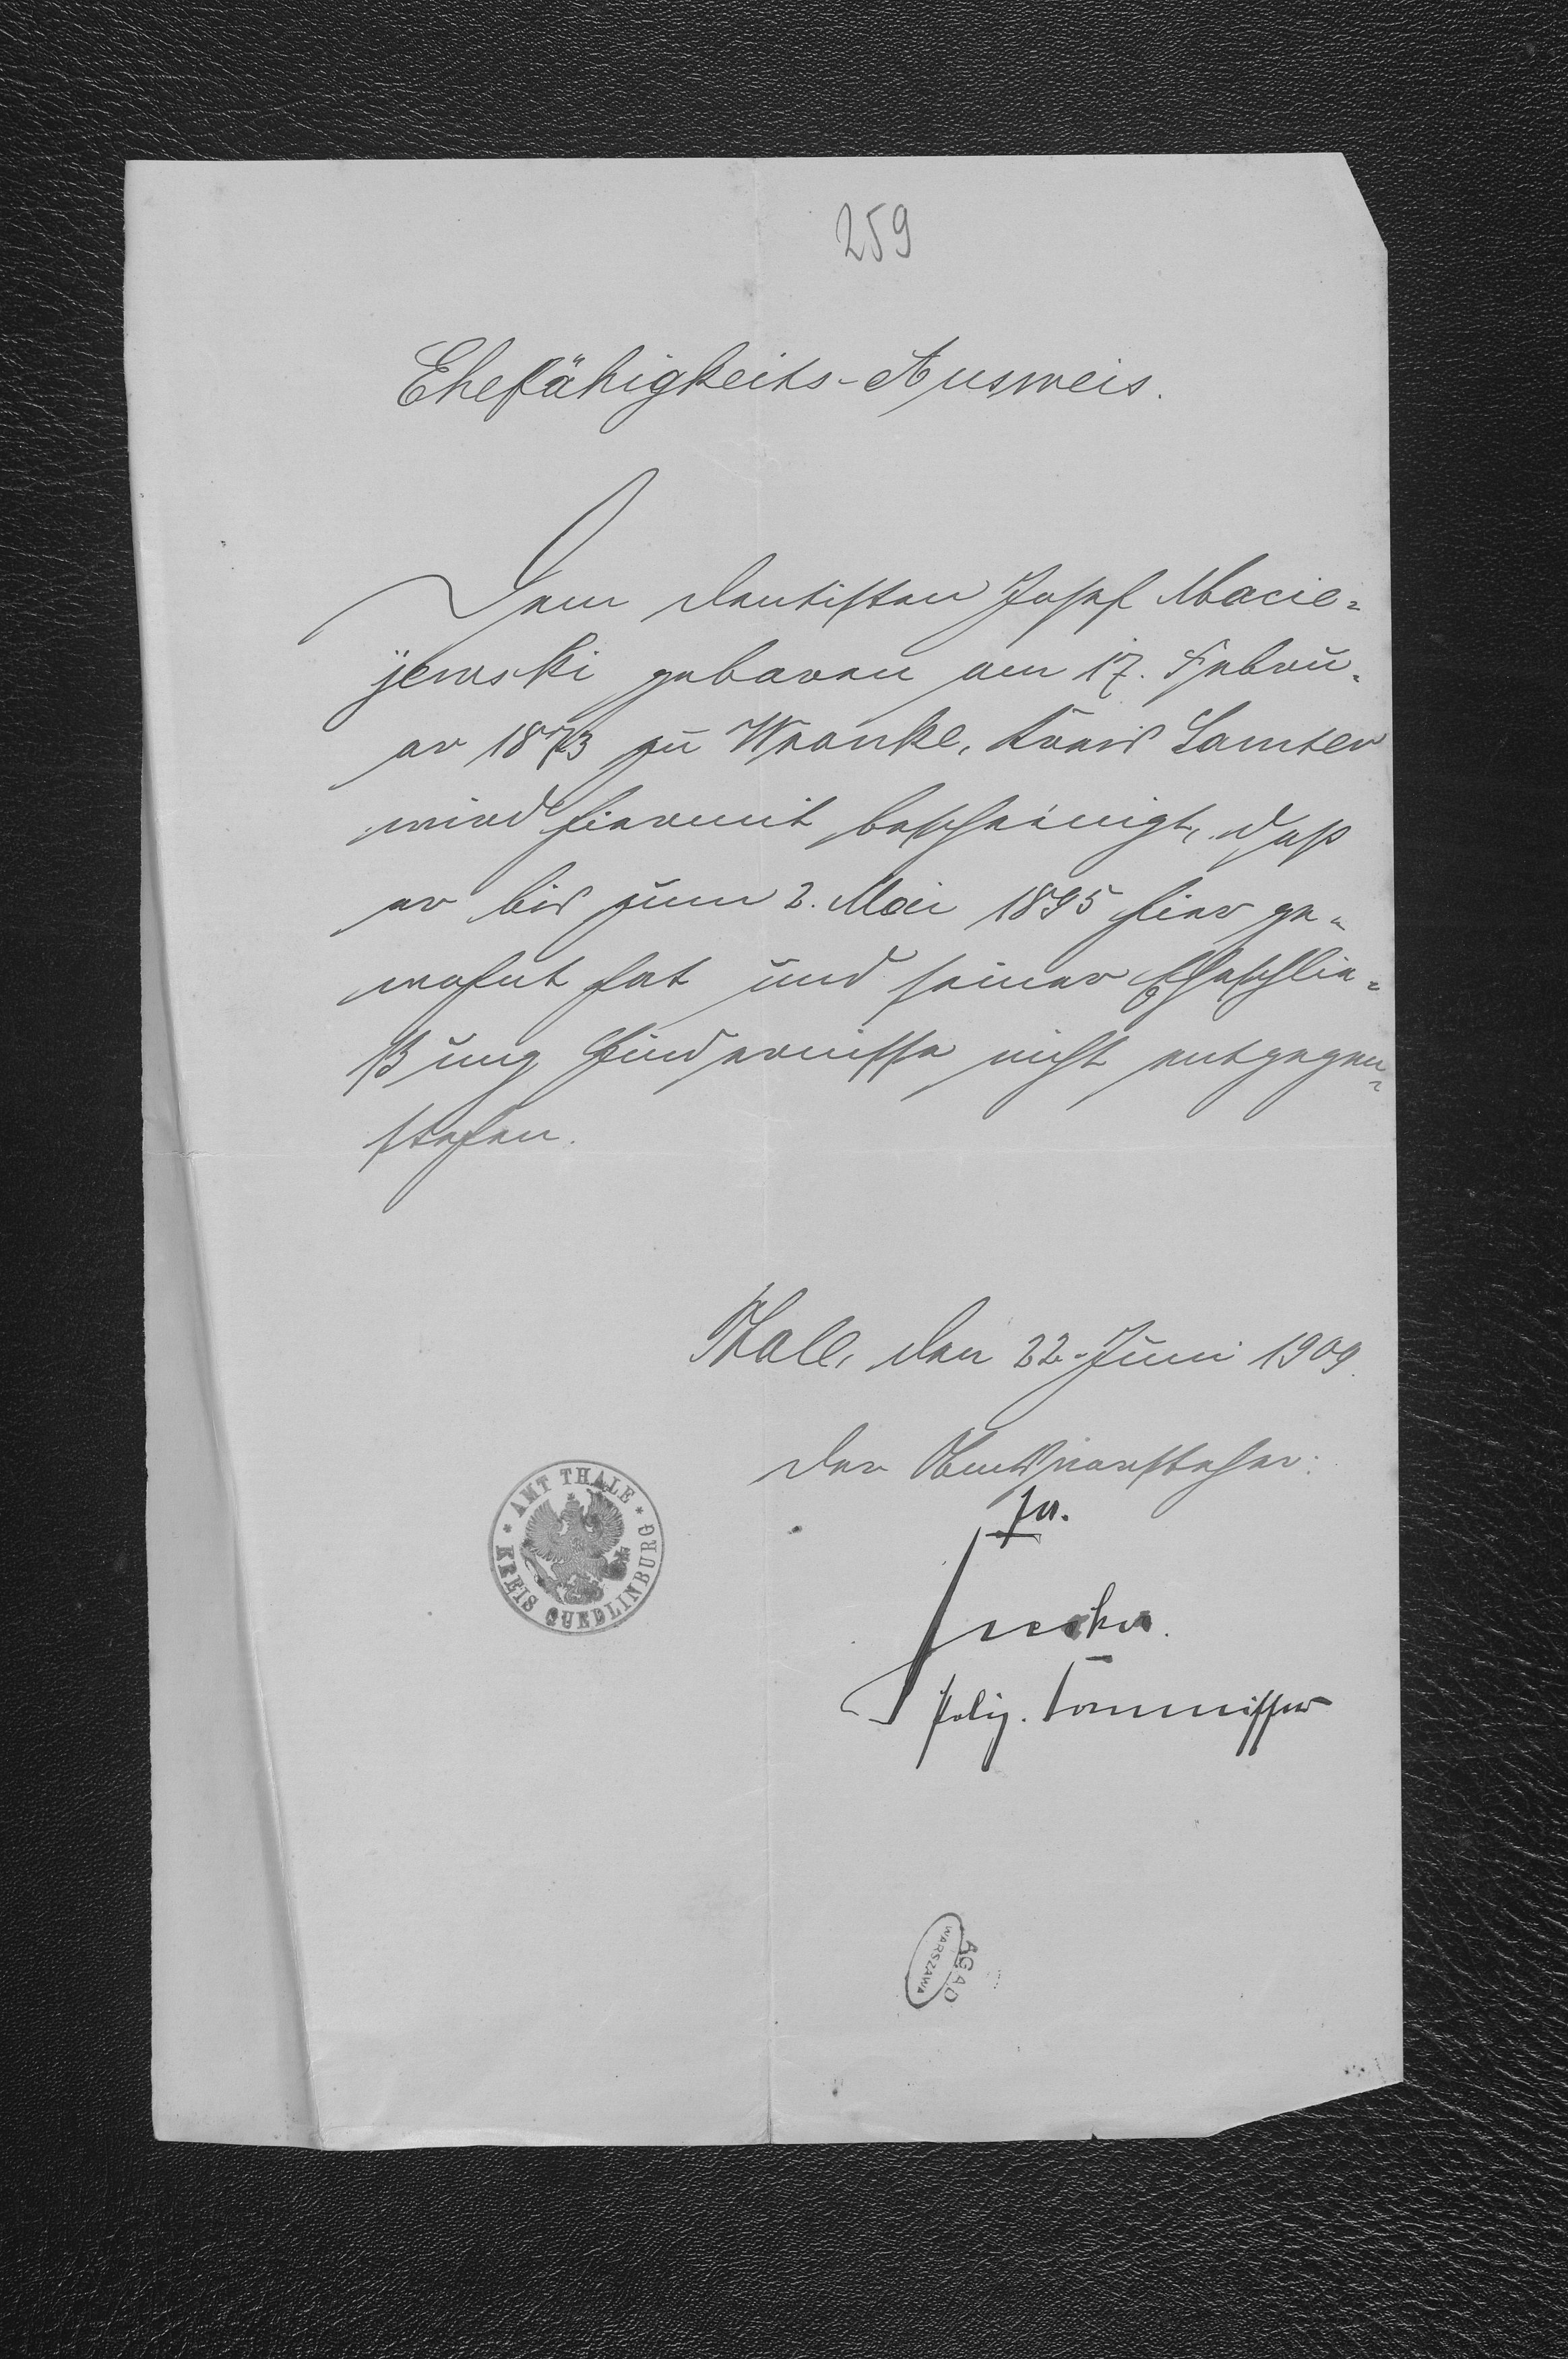 259
Ehefähigkeits-Ausweis.
Dem Dentisten Josef Macie=
jewski geboren am 17. Febru=
ar 1873 zu Wronke, Kreis Samter
wird hiermit bescheinigt, daß
er bis zum 2. Mai 1895 hier ge=
wohnt hat und seiner Eheschlie=
ßung Hindernisse nicht entgegen=
stehen.
Thale, den 22. Juni 1909.
Der Amtsvorsteher:
Poliz. Kommissar
* AMT THALE * KREIS QUEDLINBURG
AGAD
WARSZAWA